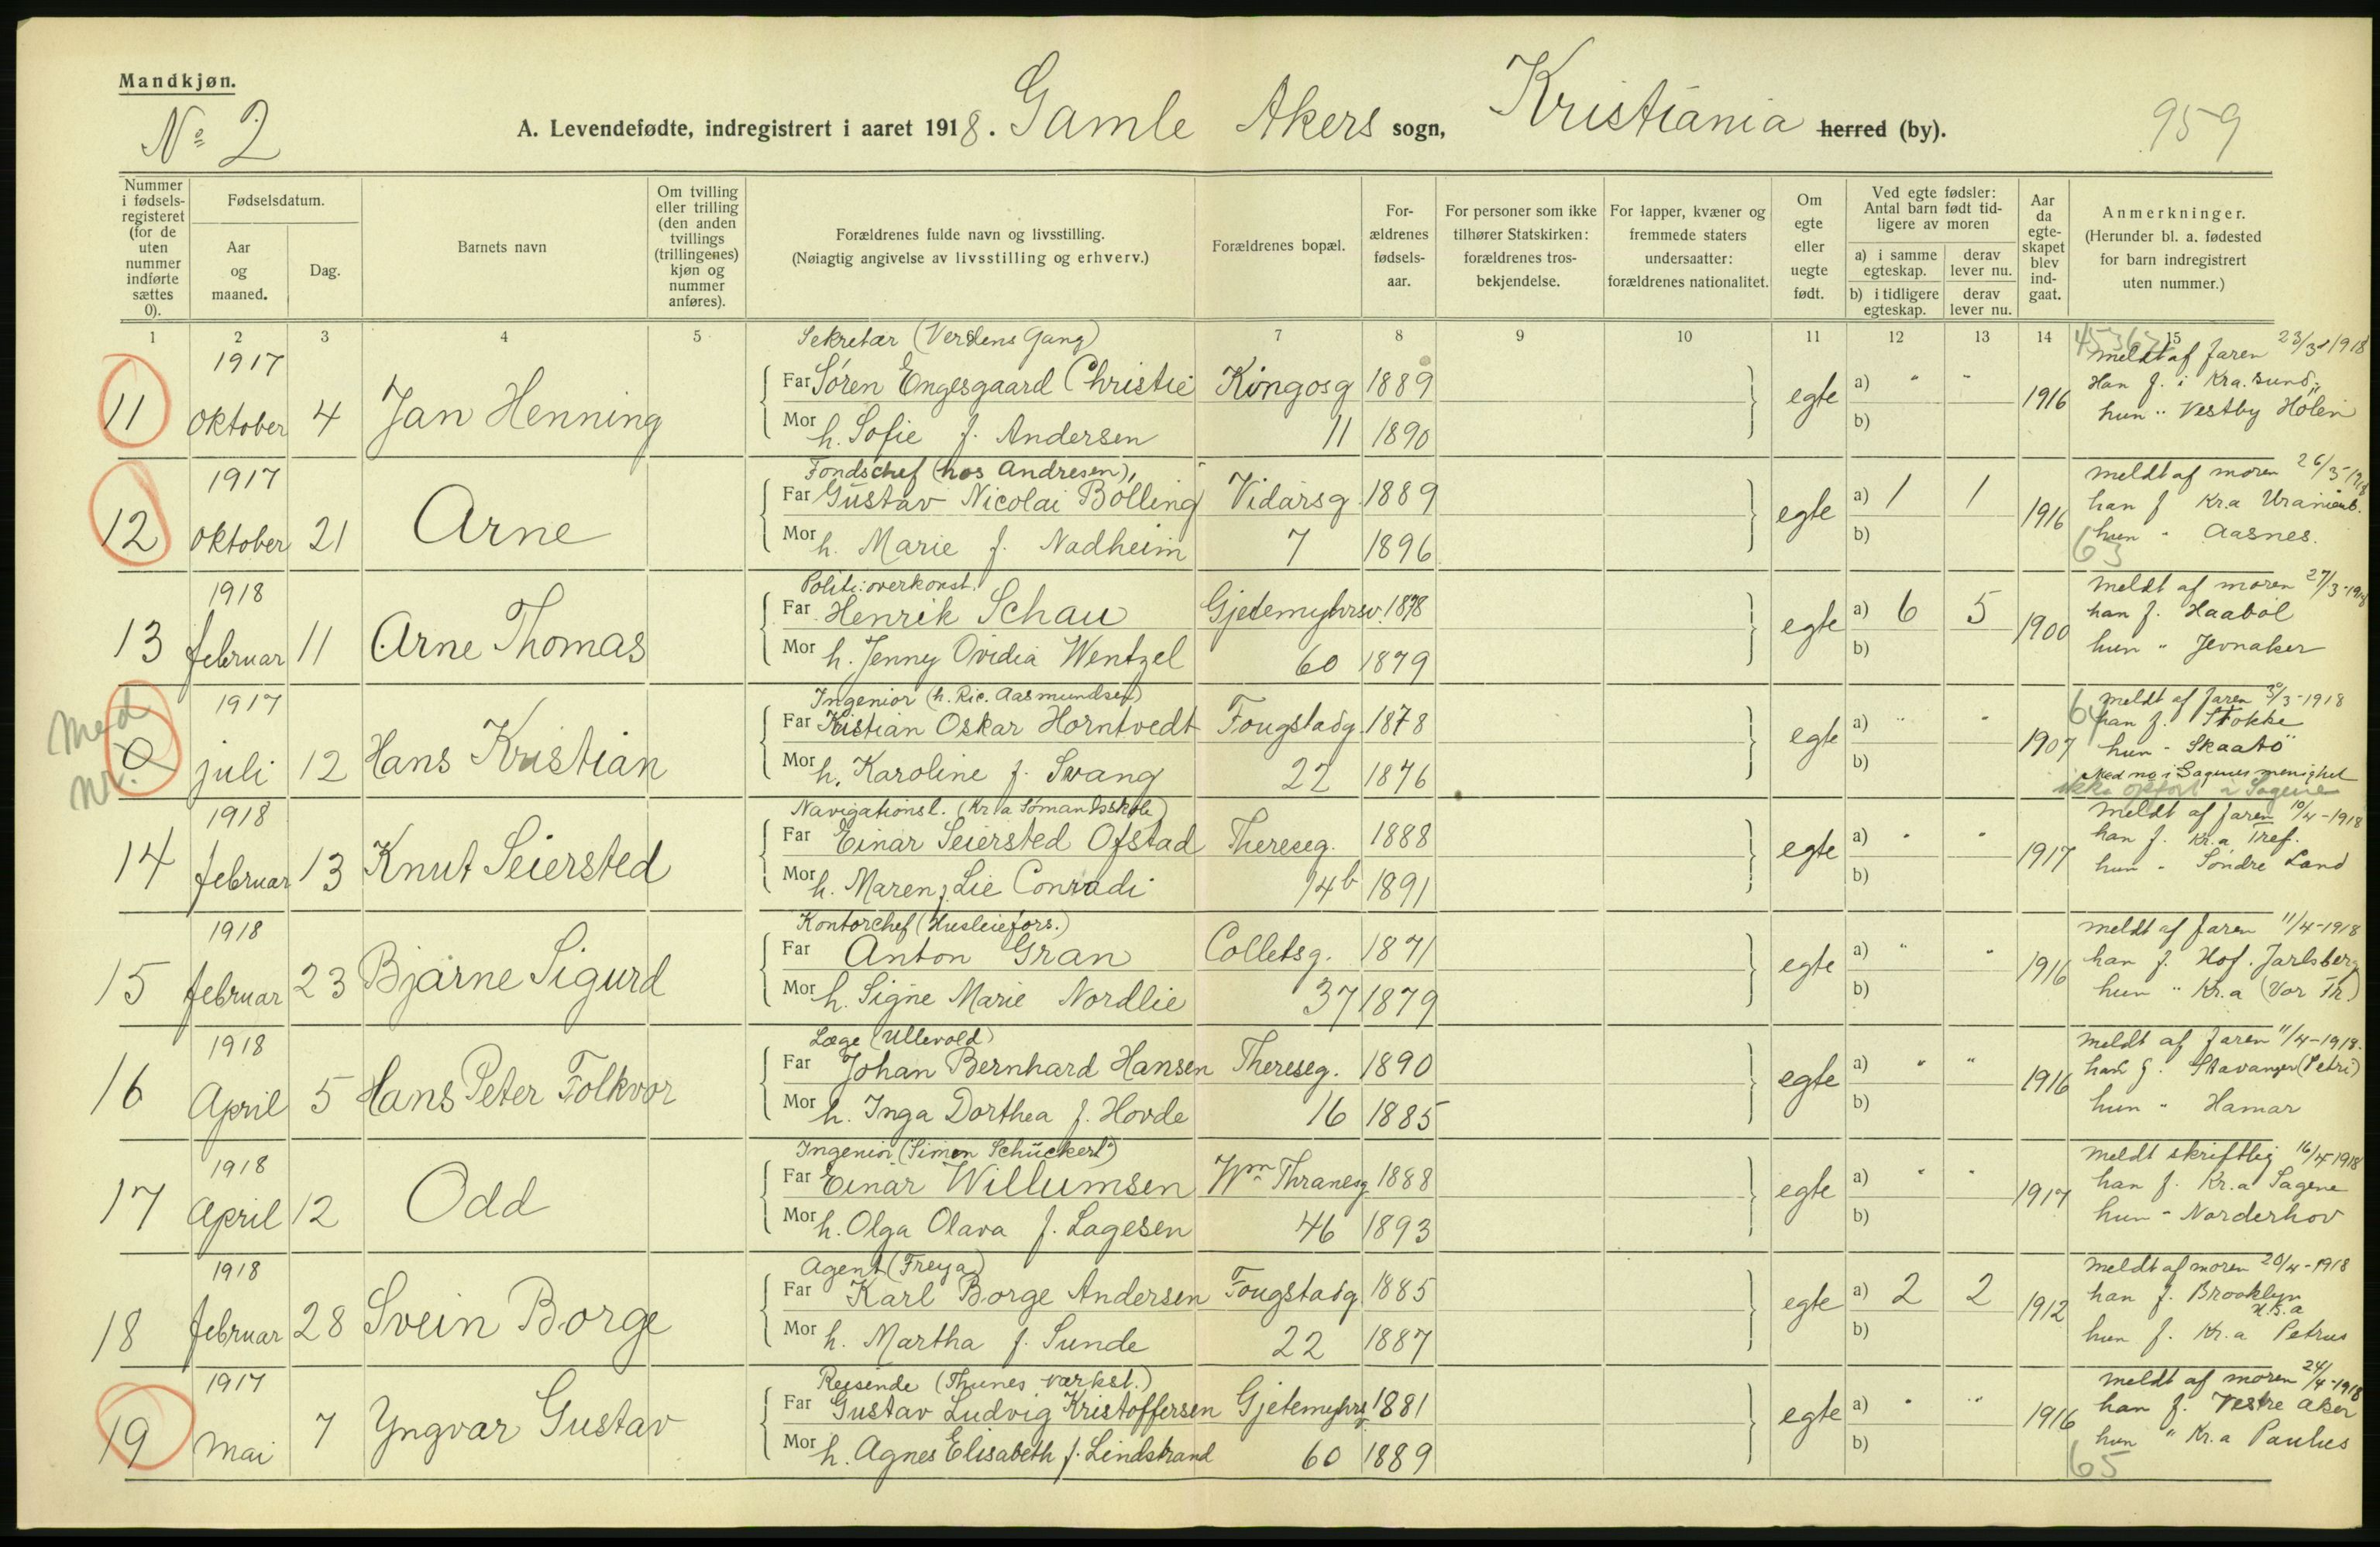 Mandkjøn.
No 2
A. Levendefødte, indregistrert i aaret 1918. Gamle Akers sogn, Kristiania herred (by).
959
Nummer i fødsels-registeret (for de uten nummer indførte sættes 0).
Fødselsdatum.
Aar og maaned.
Dag.
Barnets navn
Om tvilling eller trilling (den anden tvillings (trillingenes) kjøn og nummer anføres).
Forældrenes fulde navn og livsstilling.
(Nøiagtig angivelse av livsstilling og erhverv.)
Forældrenes bopæl.
For-ældrenes fødsels-aar.
For personer som ikke tilhører Statskirken: forældrenes tros-bekjendelse.
For lapper, kvæner og fremmede staters undersaatter: forældrenes nationalitet.
Om egte eller uegte født.
Ved egte fødsler: Antal barn født tid-ligere av moren
a) i samme egteskap. derav lever nu.
b) i tidligere egteskap. derav lever nu.
Aar da egte-skapet blev ind-gaat.
Anmerkninger.
(Herunder bl. a. fødested for barn indregistrert uten nummer.)
1 2 3 4 5 6 7 8 9 10 11 12 13 14 15
Sekretær (Verdens Gang) meldt af faren 23/3-1918
1917 Far Søren Engesgaard Christie Kingosg 1889 a) " " Han f. i Kra.sund,
11 oktober 4 Jan Henning egte 1916 hun " Vestby Hølen
Mor h. Sofie f. Andersen 11 1890 b)
Fondschef (hos Andresen), meldt af moren 26/3-1918
1917 Far Gustav Nicolai Bolling Vidarsg 1889 a) 1 1 han f Kr.a Uranienb.
12 oktober 21 Arne egte 1916 hun " Aasnes.
Mor h. Marie f. Nadheim 7 1896 b) 63
Politi:overkonst. meldt af moren 27/3-1918
1918 Far Henrik Schau Gjetemyhrsv. 1878 a) 6 5 han f. Haabøl
13 februar 11 Arne Thomas egte 1900 hun " Jevnaker
Mor h. Jenny Ovidia Wentzel 60 1879 b)
Ingeniør (h. Ric. Aasmundsen) meldt af faren 3/3-1918
1917 Far Kristian Oskar Horntvedt Fougstadg. 1878 a) " " 64 han f. Stokke
Med nr. 0 juli 12 Hans Kristian egte 1907 hun - Skaatø
Mor h. Karoline f. Svang 22 1876 b) Med no i Sagenes menighet
ikke opført i Sagene
Navigationsl. (Kr.a Sømandsskole) meldt af faren 10/4-1918
1918 Far Einar Seiersted Ofstad Thereseg. 1888 a) " " han f. Kr.a Tref.
14 februar 13 Knut Seiersted egte 1917 hun - Søndre Land
Mor h. Maren f. Lie Conradi 14b 1891 b)
Kontorchef (Husleiefors.) meldt af faren 11/4-1918
1918 Far Anton Gran Colletsg. 1871 a) " " han f. Hof. Jarlsberg
15 februar 23 Bjarne Sigurd egte 1916 hun " Kr.a (Vor Fr.)
Mor h. Signe Marie Nordlie 37 1879 b)
Læge (Ullevold) meldt af faren 11/4-1918.
1918 Far Johan Bernhard Hansen Thereseg. 1890 a) " " han f. Stavanger (Petri)
16 April 5 Hans Peter Folkvor egte 1916 hun " Hamar
Mor h. Inga Dorthea f. Hovde 16 1885 b)
Ingeniør (Simen Schückert) meldt skriftlig 16/4 1918
1918 Far Einar Willumsen Wm Thranesg 1888 a) " " han f. Kr.a Sagene
17 April 12 Odd egte 1917 hun - Norderhov
Mor h. Olga Olava f. Lagesen 46 1893 b)
Agent (Freya) meldt af moren 20/4-1918
1918 Far Karl Borge Andersen Fougstadg 1885 a) 2 2 han f. Brooklyn
18 februar 28 Svein Borge egte 1912
Mor h. Martha f. Sunde 22 1887 b) hun f. Kr.a Petrus
Reisende (Thunes værkst.) meldt af moren 24/4-1918
1917 Far Gustav Ludvig Kristoffersen Gjetemyhrsv 1881 a) " " han f. Vestre Aker
19 mai 7 Yngvar Gustav egte 1916 hun " Kr.a Paulus
Mor h. Agnes Elisabeth f. Lindstrand 60 1889 b) 65